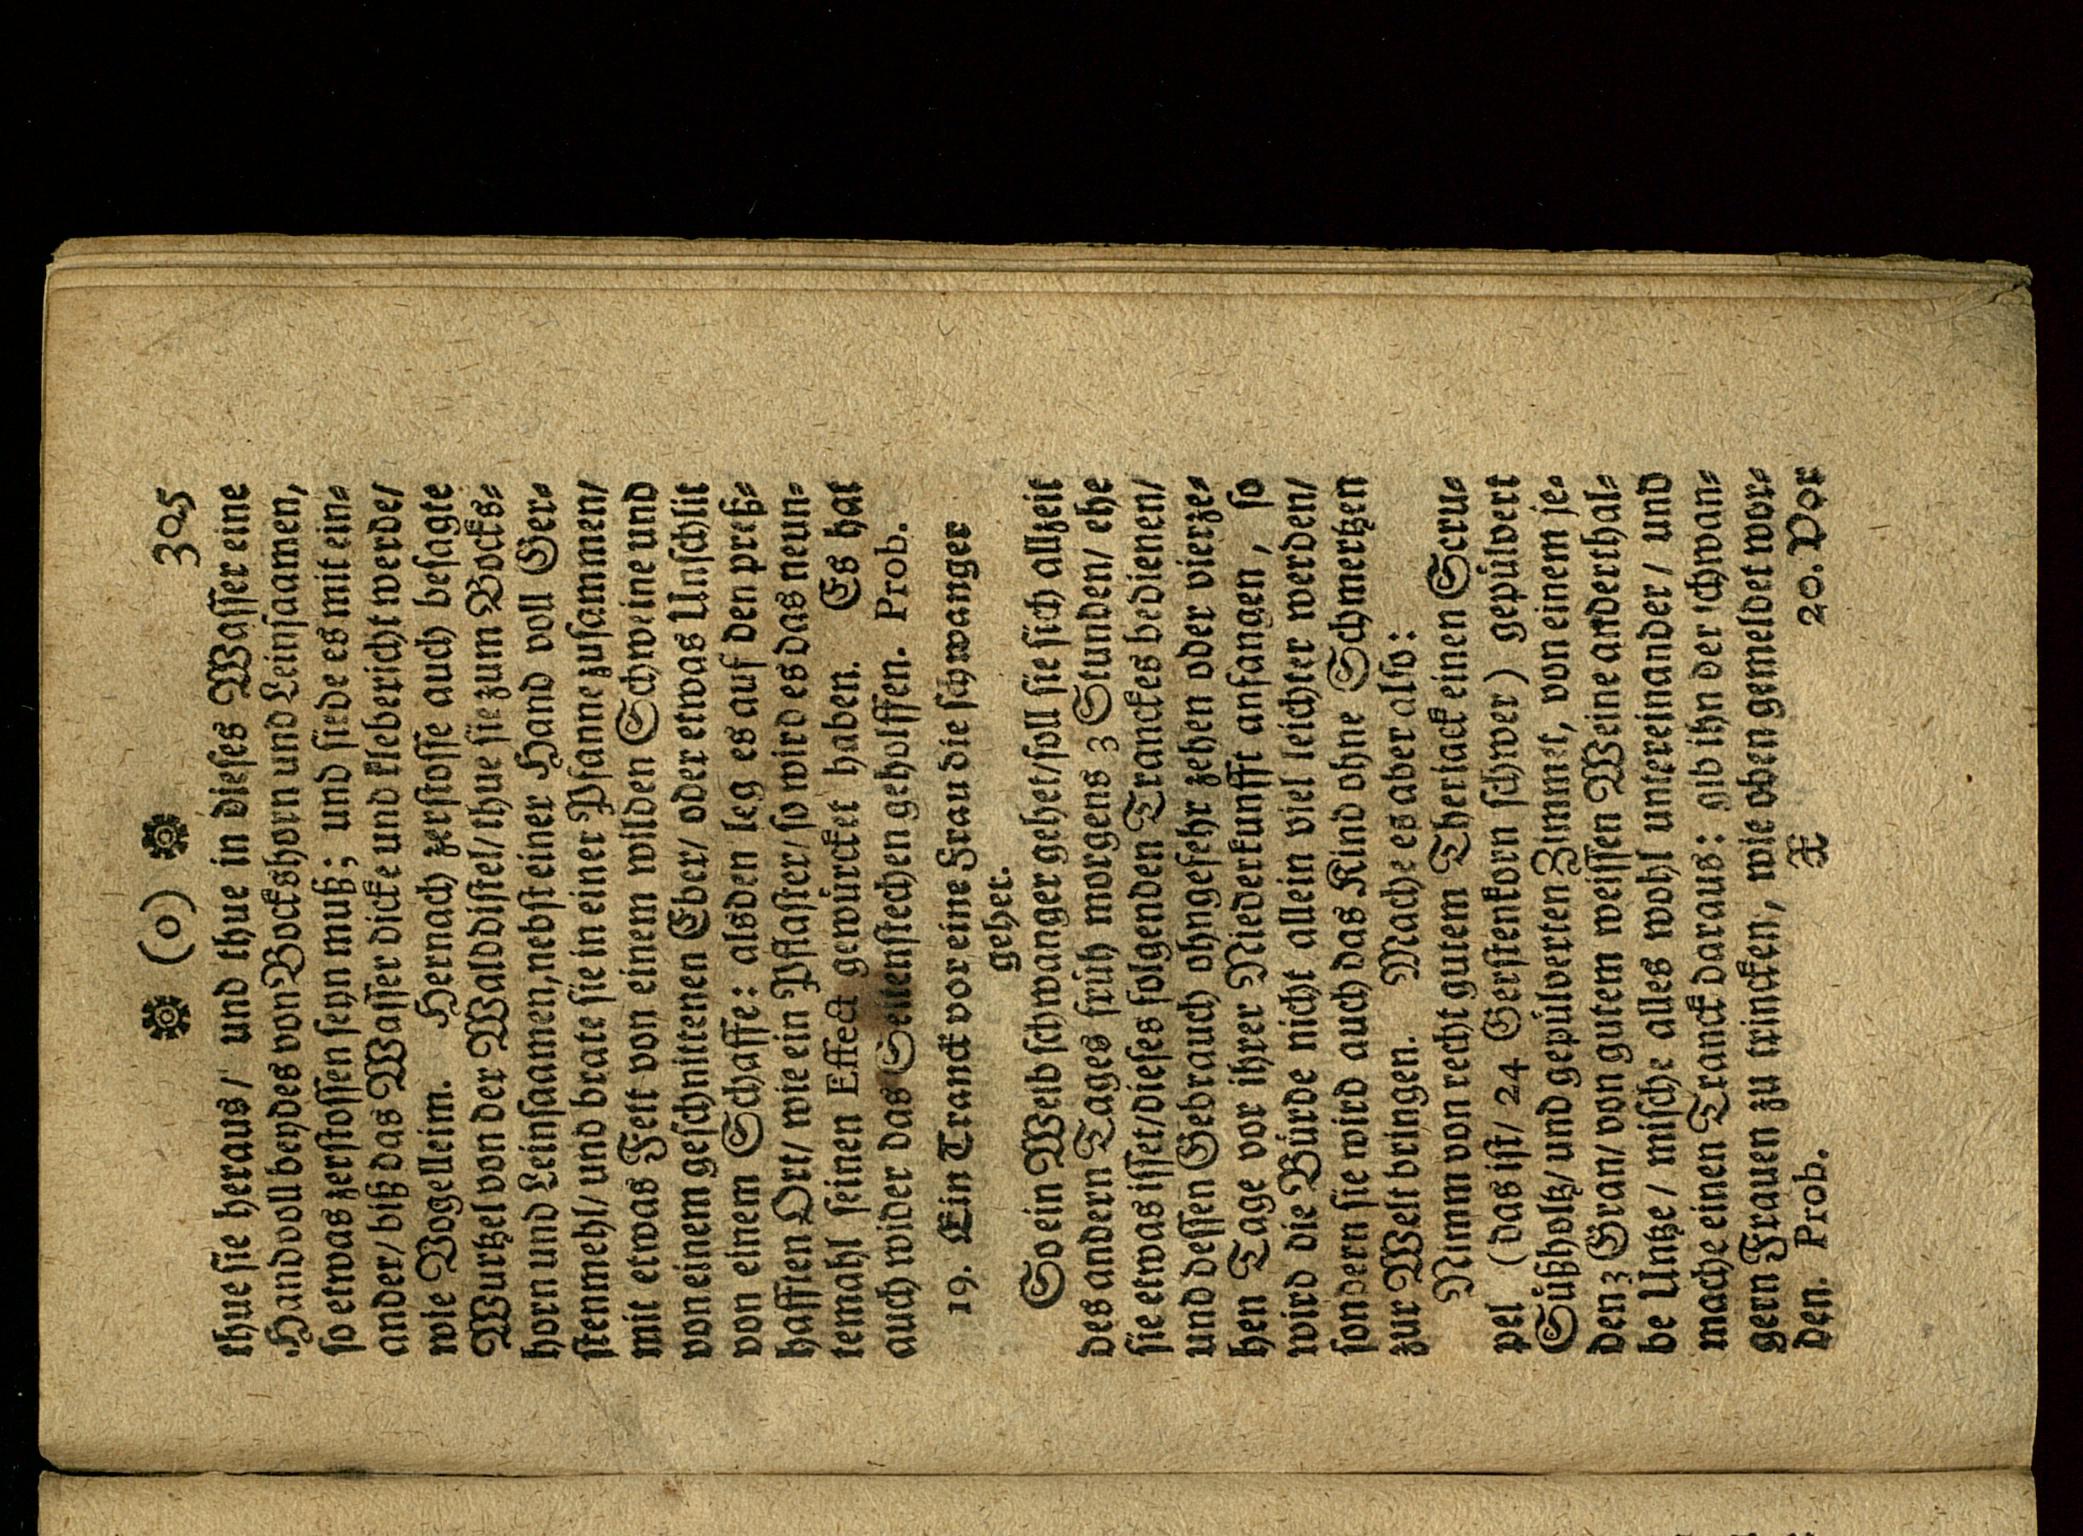 ❁ (o) ❁ 305
thue sie heraus/ und thue in dieses Wasser eine
Handvoll beydes von Bockshorn und Leinsaamen,
so etwas zerstossen seyn muß; und siede es mit ein⸗
ander/ biß das Wasser dicke und kleberícht werde/
wie Vogelleim. Hernach zerstosse auch besagte
Wurtzel von der Walddistel/ thue sie zum Bocks⸗
horn und Leinsaamen, nebst einer Hand voll Ger⸗
stenmehl/ und brate sie in einer Pfanne zusammen/
mit etwas Fett von einem wilden Schweine und
von einem geschnittenen Eber/ oder etwas Unschlit
von einem Schaffe: alsden leg es auf den preß⸗
hafften Ort/ wie ein Pflaster/ so wird es das neun⸗
temahl seinen Effect gewürcket haben. Es hat
auch wider das Seitenstechen geholffen. Prob.
19. Ein Tranck vor eine Frau die schwanger
gehet.
So ein Weib schwanger gehet/ soll sie sich allzeit
des andern Tages früh morgens 3 Stunden/ ehe
sie etwas isset/ dieses folgenden Tranckes bedienen/
und dessen Gebrauch ohngefehr zehen oder vierze⸗
hen Tage vor ihrer Niederkunfft anfangen, so
wird die Bürde nicht allein viel leichter werden/
sondern sie wird auch das Kind ohne Schmertzen
zur Welt bringen. Mache es aber also:
Nimm von recht gutem Theriack einen Scru⸗
pel (das ist/ 24 Gerstenkorn schwer) gepülvert
Süßholtz/ und gepülverten Zimmet, von einem je⸗
den 3 Gran/ von gutem weissen Weine anderthal⸗
be Untze/ mische alles wohl untereinander/ und
mache einen Tranck daraus: gib ihn der schwan⸗
gern Frauen zu trincken, wie oben gemeldet wor⸗
den. Prob. X 20. Vor